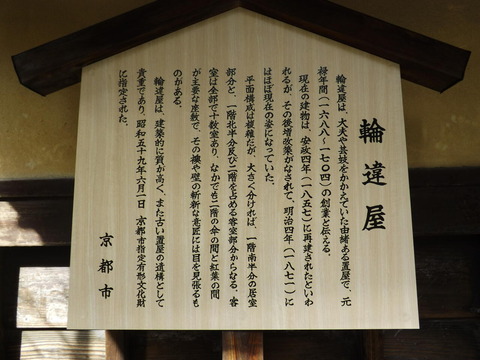 輪違屋
輪違屋は、太夫や芸妓をかかえていた由緒ある置屋で、元
禄年間（一六八八〜一七〇四）の創業と伝える。
現在の建物は、安政四年（一八五七）に再建されたといわ
れるが、その後増改築がなされて、明治四年（一八七一）に
はほぼ現在の姿になっていた。
平面構成は複雑だが、大きく分ければ、一階南半分の居室
部分と、一階北半分及び二階を占める客室部分からなる。客
室は全部で十数室あり、なかでも二階の傘の間と紅葉の間
が主要な座敷で、その襖や壁の斬新な意匠には目を見張るも
のがある。
輪違屋は、建築的に質が高く、また古い置屋の遺構として
貴重であり、昭和五十九年六月一日　京都市指定有形文化財
に指定された。
京都市